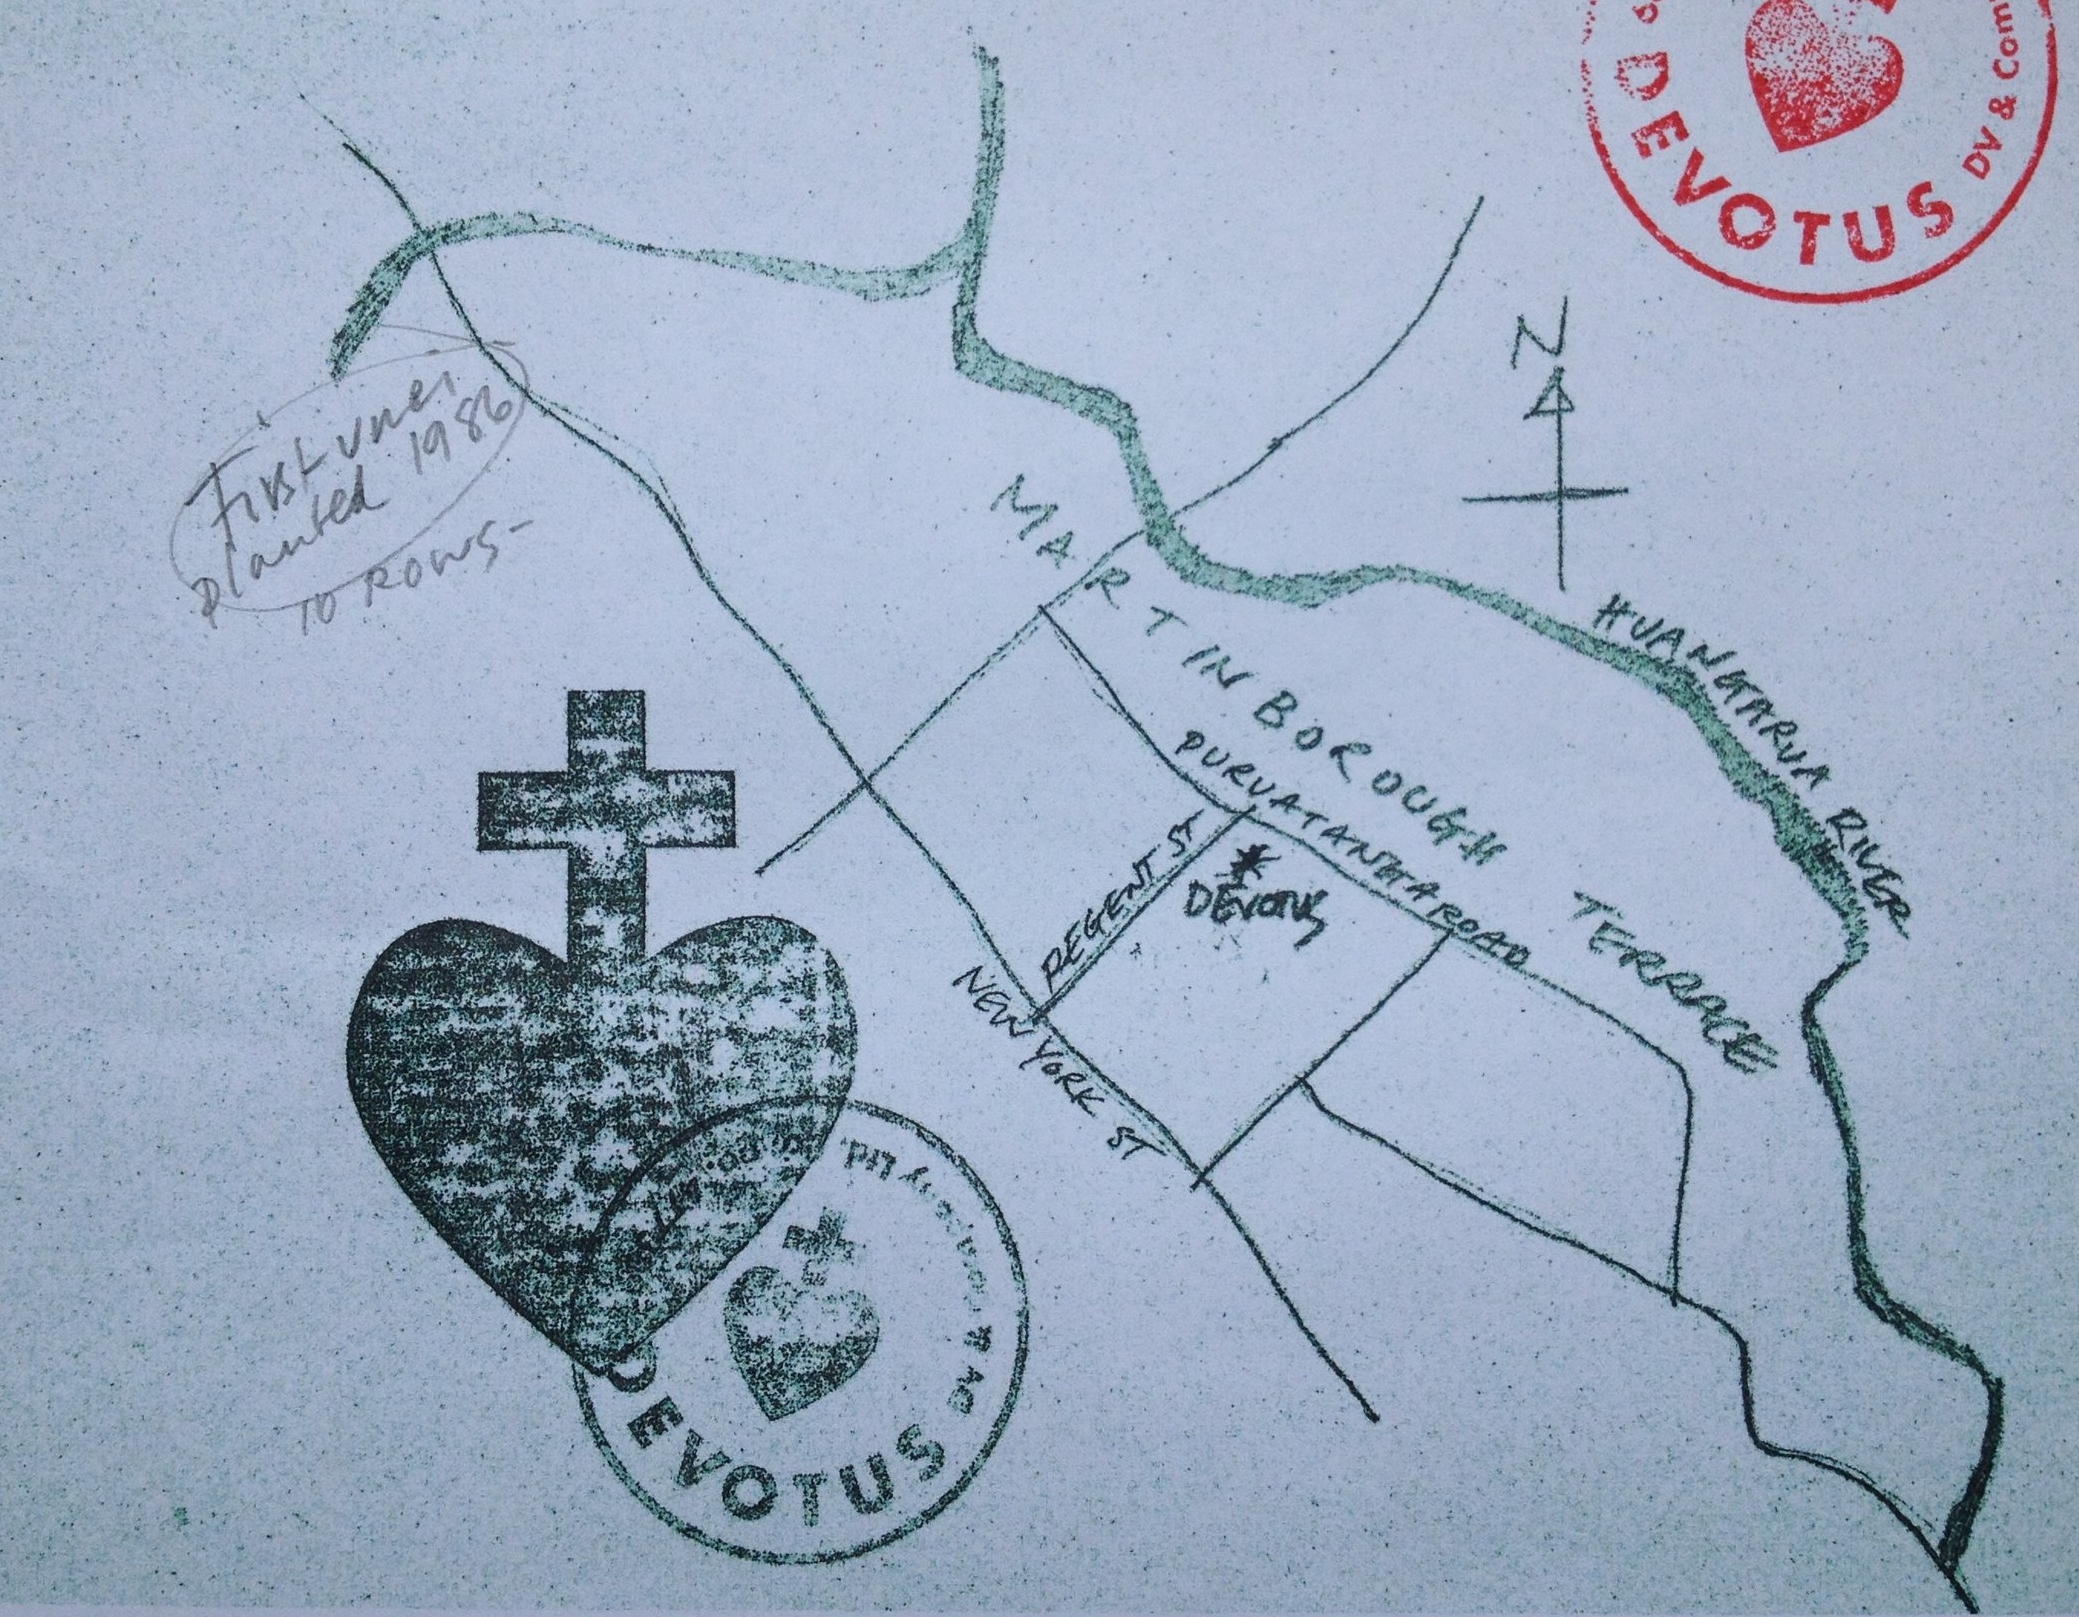 DEVOTUS
DV & Com
N
First vines
planted 1986
10 ROWS-
MARTINBOROUGH TERRACE
HUANGARUA RIVER
PURUATANGA ROAD
REGENT ST
DEVOTUS
NEW YORK ST
DEVOTUS